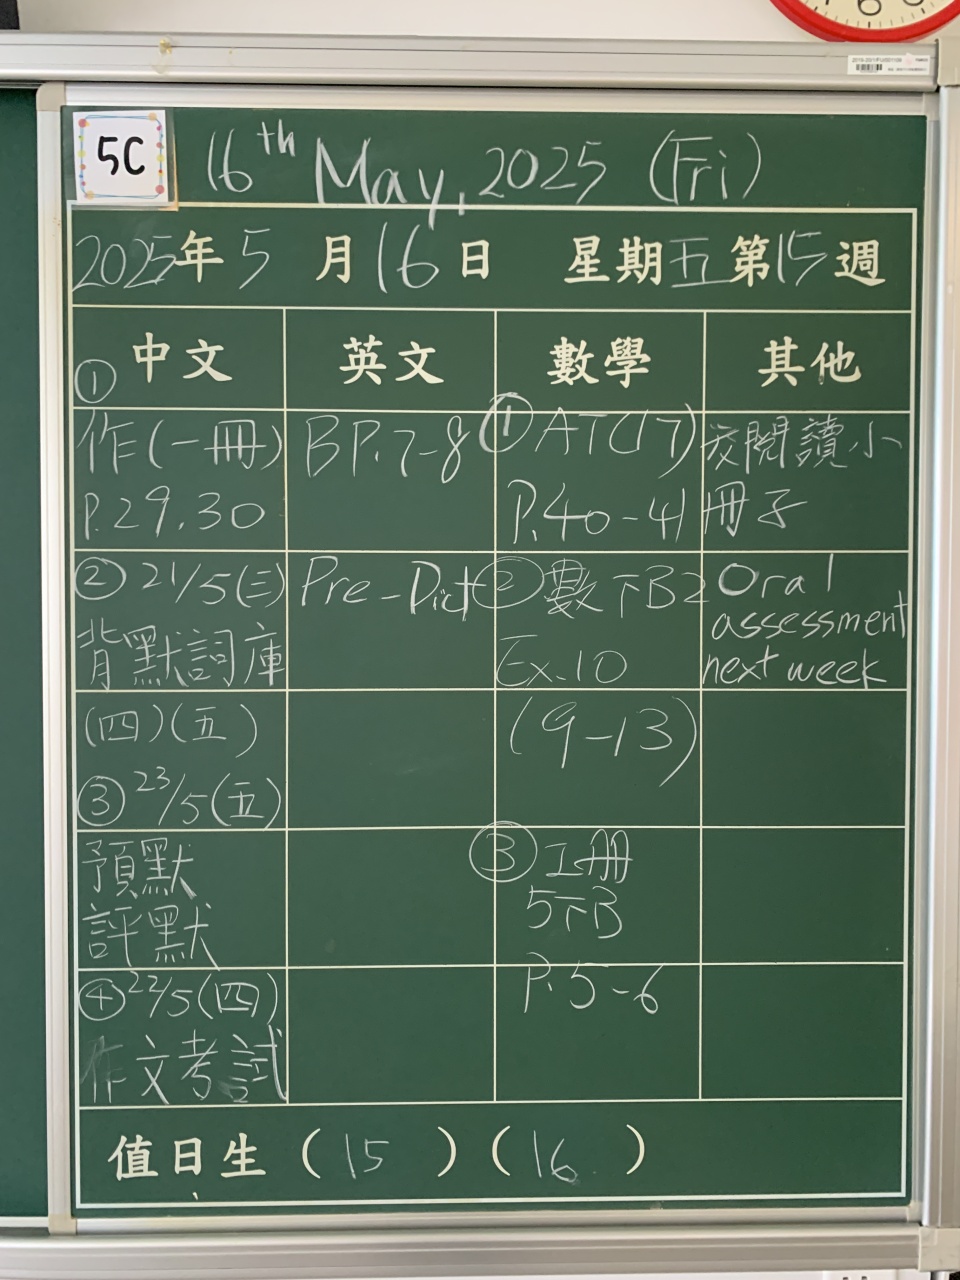 5C
16th May, 2025 (Fri)
2025年5月16日 星期五第15週
中文
①
作(一冊)
P.29.30
② 21/5(三)
背默詞庫
(四)(五)
③ 23/5(五)
預默
評默
④ 22/5(四)
作文考試
英文
BP.7-8
Pre-Dict
數學
① AT(17)
P.40-41
② 數下B2
Ex.10
(9-13)
③ 工冊
5下B
P.5-6
其他
交閱讀小
冊子
Oral
assessment
next week
值日生 (15) (16)